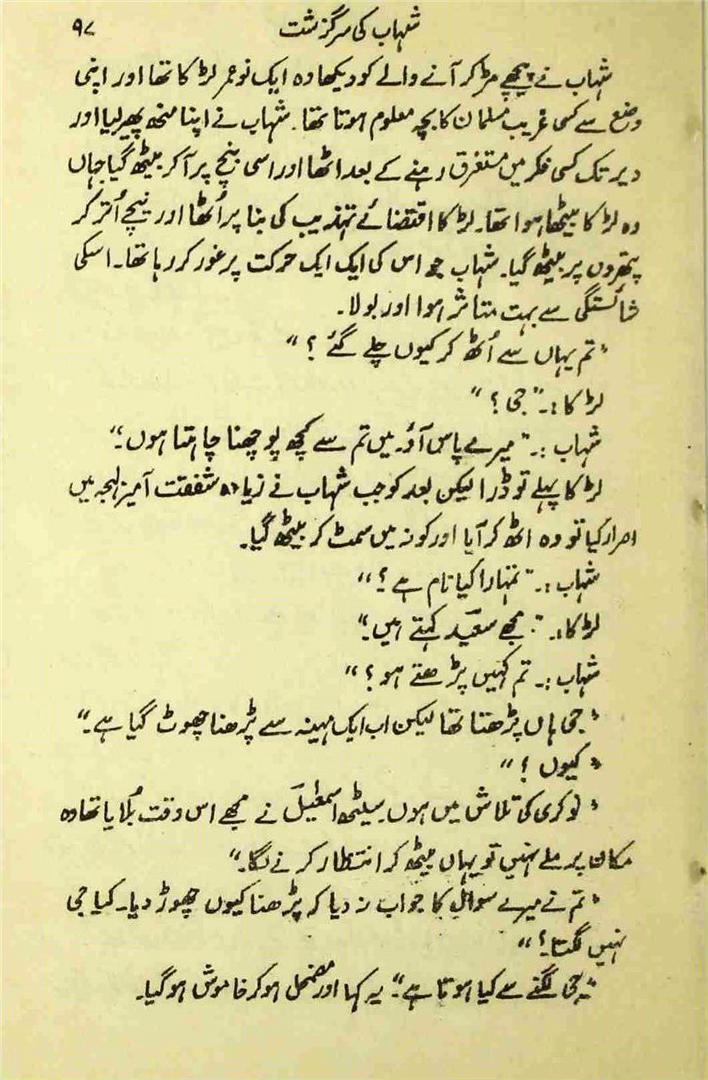 شہاب کی سرگزشت ۹۷
شہاب نے پیچھے مڑ کر آنے والے کو دیکھا وہ ایک نو عمر لڑکا تھا اور اپنی
وضع سے کسی غریب مسلمان کا بچہ معلوم ہوتا تھا۔ شہاب نے اپنا منھ پھیر لیا اور
دیر تک کسی فکر میں مستغرق رہنے کے بعد اٹھا اور اسی بنچ پر آ کر بیٹھ گیا جہاں
وہ لڑکا بیٹھا ہوا تھا۔ لڑکا اقتضائے تہذیب کی بنا پر اُٹھا اور نیچے اُتر کر
پتھروں پر بیٹھ گیا۔ شہاب جو اس کی ایک ایک حرکت پر غور کر رہا تھا۔ اسکی
شائستگی سے بہت متاثر ہوا اور بولا۔
"تم یہاں سے اُٹھ کر کیوں چلے گئے ؟"
لڑکا:۔ "جی ؟"
شہاب :۔ "میرے پاس آؤ۔ میں تم سے کچھ پوچھنا چاہتا ہوں۔"
لڑکا پہلے تو ڈرا لیکن بعد کو جب شہاب نے زیادہ شفقت آمیز لہجہ میں
اصرار کیا تو وہ اٹھ کر آیا اور کونہ میں سمٹ کر بیٹھ گیا۔
شہاب :۔ "تمہارا کیا نام ہے ؟"
لڑکا:۔ "مجھے سعید کہتے ہیں۔"
شہاب :۔ تم کہیں پڑھتے ہو ؟"
"جی ہاں پڑھتا تھا لیکن اب ایک مہینہ سے پڑھنا چھوٹ گیا ہے۔"
"کیوں ؟"
"نوکری کی تلاش میں ہوں۔ سیٹھ اسمٰعیل نے مجھے اس وقت بُلایا تھا وہ
مکان پر ملے نہیں تو یہاں بیٹھ کر انتظار کرنے لگا۔"
"تم نے میرے سوال کا جواب نہ دیا کہ پڑھنا کیوں چھوڑ دیا۔ کیا جی
نہیں لگتا ؟"
"جی لگنے سے کیا ہوتا ہے۔" یہ کہا اور مضمحل ہو کر خاموش ہو گیا۔